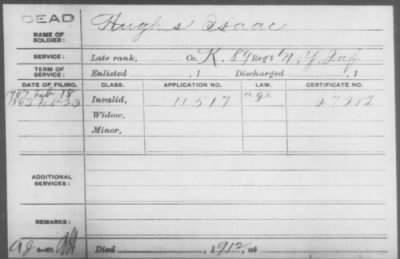 DEAD
NAME OF SOLDIER: Hughs Isaac
SERVICE: Late rank, Co. K, 89 Reg't N.Y. Inf
TERM OF SERVICE: Enlisted , 1 Discharged , 1
DATE OF FILING. CLASS. APPLICATION NO. LAW. CERTIFICATE NO.
1907 Feb 18 Invalid, 11517 age
Widow,
Minor,
ADDITIONAL SERVICES:
REMARKS:
Died , 1912, at